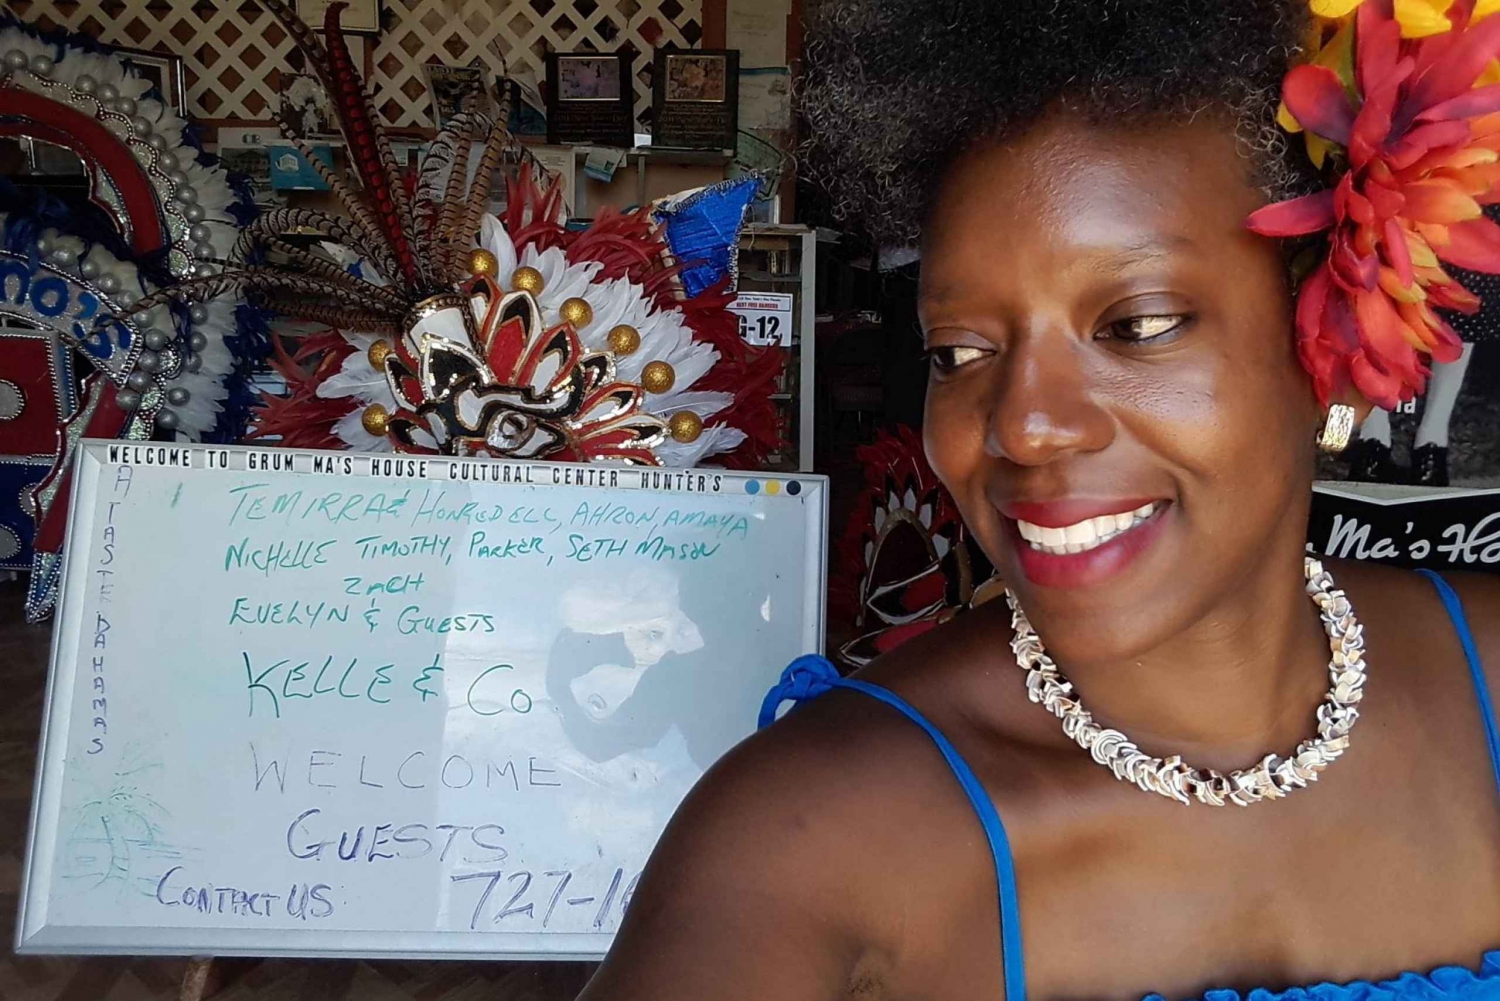 WELCOME TO GRUM MA'S HOUSE CULTURAL CENTER HUNTER'S
A TASTE BAHAMAS
TEMIRRA & HONREDELL, AHRON, AMAYA
NICHELLE TIMOTHY, PARKER, SETH MASON
ZACH
EVELYN & GUESTS
KELLE & CO
WELCOME
GUESTS
CONTACT US: 727-1
NO'S
BEST FREE DANCERS
G-12
Ma's Ho